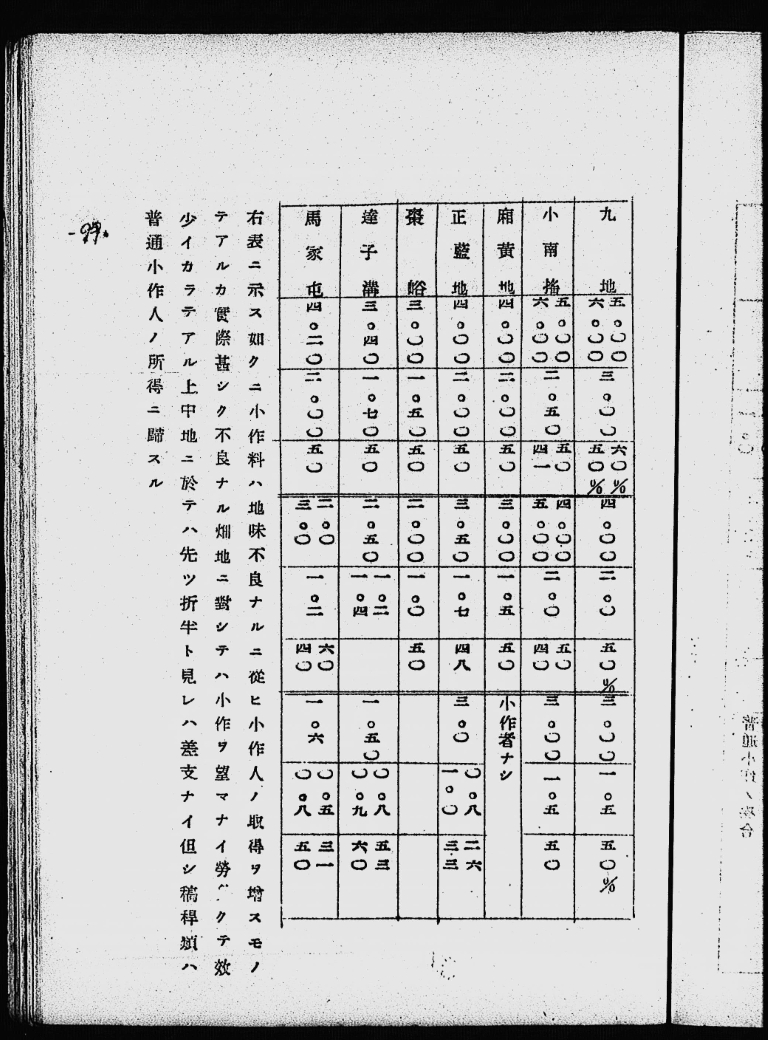 九地 五.〇〇 六.〇〇 三.〇〇 六〇% 五〇% 四.〇〇 二.〇 五〇% 三.〇〇 一.五 五〇%
小南搖 五.〇〇 六.〇〇 二.五〇 五〇 四一 四.〇〇 五.〇〇 二.〇 五〇 四〇 三.〇〇 一.五 五〇
廂黃地 四.〇〇 二.〇〇 五〇 三.〇〇 一.五 五〇 小作者ナシ
正藍地 四.〇〇 二.〇〇 五〇 三.五〇 一.七 四八 三.〇 〇.八 一.〇 二六 三三
棗峪 三.〇〇 一.五〇 五〇 二.〇〇 一.〇 五〇
達子溝 三.四〇 一.七〇 五〇 二.五〇 一.二 一.四 一.五〇 〇.八 〇.九 五三 六〇
馬家屯 四.二〇 二.〇〇 五〇 二.〇 三.〇 一.二 六〇 四〇 一.六 〇.五 〇.八 三一 五〇
右表ニ示ス如クニ小作料ハ地味不良ナルニ從ヒ小作人ノ取得ヲ增スモノ
テアルカ實際甚シク不良ナル畑地ニ對シテハ小作ヲ望マナイ勞クテ效
少イカラテアル上中地ニ於テハ先ツ折半ト見レハ差支ナイ但シ稿稈類ハ
普通小作人ノ所得ニ歸スル